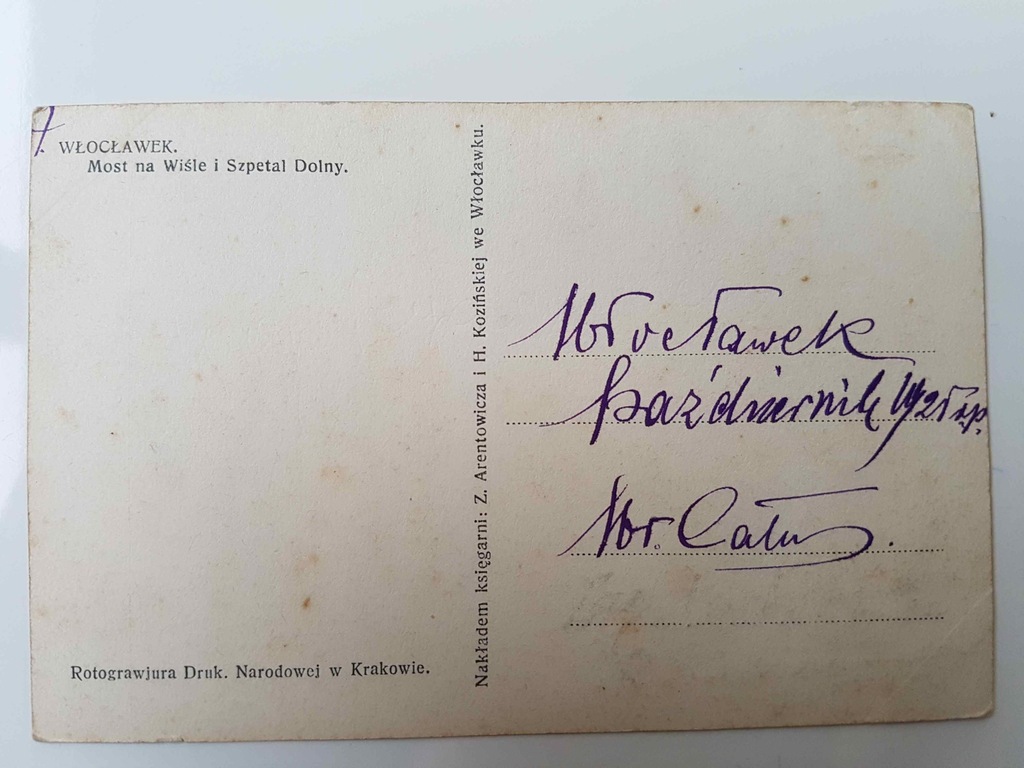 7.
WŁOCŁAWEK.
Most na Wiśle i Szpetal Dolny.
Rotograwjura Druk. Narodowej w Krakowie.
Nakładem księgarni: Z. Arentowicza i H. Kozińskiej we Włocławku.
Włocławek
październik
Wr.